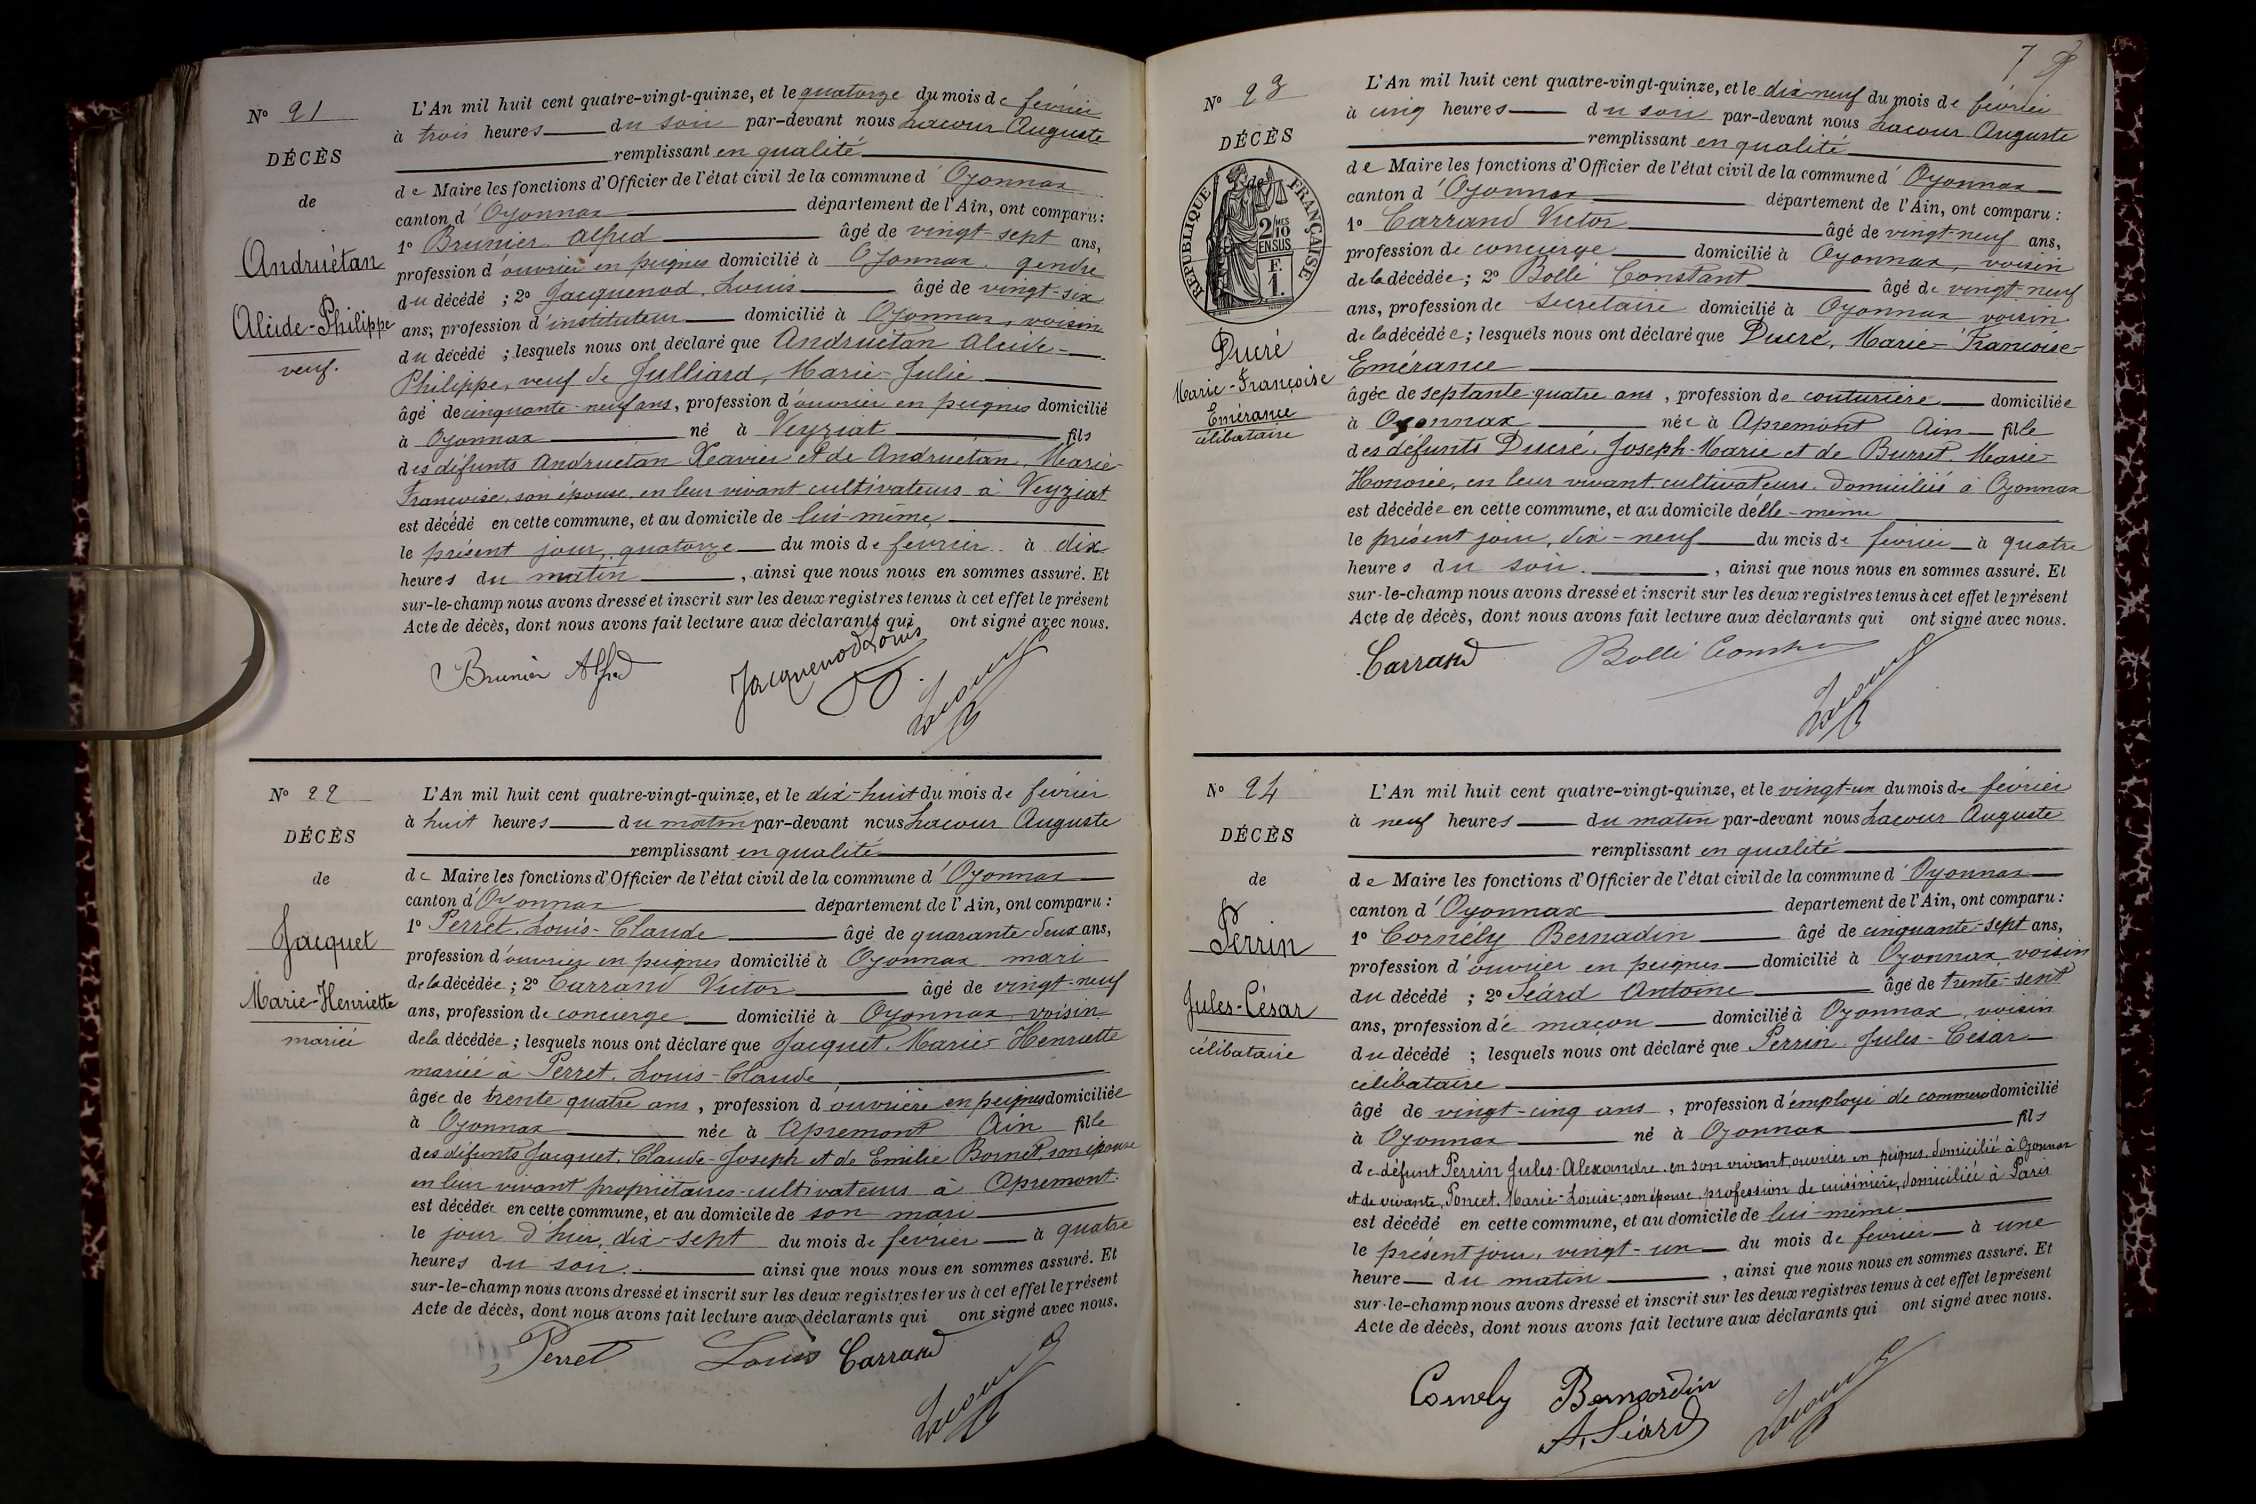 N° 21
DÉCÈS
de
Andruétan
Alcide-Philippe
veuf.
L'An mil huit cent quatre-vingt-quinze, et le quatorze du mois de février
à trois heures du soir par-devant nous Lacour Auguste
remplissant en qualité
de Maire les fonctions d'Officier de l'état civil de la commune d'Oyonnax
canton d'Oyonnax département de l'Ain, ont comparu :
1° Brunier Alfred âgé de vingt-sept ans,
profession d'ouvrier en peignes domicilié à Oyonnax, gendre
du décédé ; 2° Jacquenod, Louis âgé de vingt-six
ans, profession d'instituteur domicilié à Oyonnax, voisin
du décédé ; lesquels nous ont déclaré que Andruétan Alcide-
Philippe, veuf de Julliard, Marie-Julie
âgé de cinquante-neuf ans, profession d'ouvrier en peignes domicilié
à Oyonnax né à Veyziat fils
des défunts Andruétan Xavier et de Andruétan, Marie-
Françoise, son épouse, en leur vivant cultivateurs à Veyziat
est décédé en cette commune, et au domicile de lui-même,
le présent jour, quatorze du mois de février à dix
heures du matin, ainsi que nous nous en sommes assuré. Et
sur-le-champ nous avons dressé et inscrit sur les deux registres tenus à cet effet le présent
Acte de décès, dont nous avons fait lecture aux déclarants qui ont signé avec nous.
Brunier Alfred Jacquenod Louis Lacour
N° 22
DÉCÈS
de
Jacquet
Marie-Henriette
mariée
L'An mil huit cent quatre-vingt-quinze, et le dix-huit du mois de février
à huit heures du matin par-devant nous Lacour Auguste
remplissant en qualité
de Maire les fonctions d'Officier de l'état civil de la commune d'Oyonnax
canton d'Oyonnax département de l'Ain, ont comparu :
1° Perret, Louis-Claude âgé de quarante-deux ans,
profession d'ouvrier en peignes domicilié à Oyonnax mari
de la décédée ; 2° Carrand Victor âgé de vingt-neuf
ans, profession de concierge domicilié à Oyonnax, voisin
de la décédée ; lesquels nous ont déclaré que Jacquet, Marie-Henriette
mariée à Perret, Louis-Claude
âgée de trente quatre ans, profession d'ouvrière en peignes domiciliée
à Oyonnax née à Apremont Ain fille
des défunts Jacquet, Claude-Joseph et de Emilie Bornet, son épouse
en leur vivant propriétaires-cultivateurs à Apremont.
est décédée en cette commune, et au domicile de son mari
le jour d'hier, dix-sept du mois de février à quatre
heures du soir. ainsi que nous nous en sommes assuré. Et
sur-le-champ nous avons dressé et inscrit sur les deux registres tenus à cet effet le présent
Acte de décès, dont nous avons fait lecture aux déclarants qui ont signé avec nous.
Perret Louis Carrand Lacour
7
N° 23
DÉCÈS
de
RÉPUBLIQUE FRANÇAISE
2/10 MES
EN SUS
F.
1.
Ducré
Marie-Françoise
Emérance
célibataire
L'An mil huit cent quatre-vingt-quinze, et le dix-neuf du mois de février
à cinq heures du soir par-devant nous Lacour Auguste
remplissant en qualité
de Maire les fonctions d'Officier de l'état civil de la commune d'Oyonnax
canton d'Oyonnax département de l'Ain, ont comparu :
1° Carrand Victor âgé de vingt-neuf ans,
profession de concierge domicilié à Oyonnax, voisin
de la décédée ; 2° Bolle Constant âgé de vingt-neuf
ans, profession de secrétaire domicilié à Oyonnax voisin
de la décédée ; lesquels nous ont déclaré que Ducré, Marie-Françoise-
Emérance
âgée de septante-quatre ans, profession de couturière domiciliée
à Oyonnax née à Apremont Ain fille
des défunts Ducré, Joseph-Marie et de Burret, Marie-
Honorée, en leur vivant cultivateurs domiciliés à Oyonnax
est décédée en cette commune, et au domicile d'elle-même
le présent jour, dix-neuf du mois de février à quatre
heures du soir. , ainsi que nous nous en sommes assuré. Et
sur-le-champ nous avons dressé et inscrit sur les deux registres tenus à cet effet le présent
Acte de décès, dont nous avons fait lecture aux déclarants qui ont signé avec nous.
Carrand Bolle Lacour
N° 24
DÉCÈS
de
Perrin
Jules-César
célibataire
L'An mil huit cent quatre-vingt-quinze, et le vingt-un du mois de février
à neuf heures du matin par-devant nous Lacour Auguste
remplissant en qualité
de Maire les fonctions d'Officier de l'état civil de la commune d'Oyonnax
canton d'Oyonnax département de l'Ain, ont comparu :
1° Cornély Bernadin âgé de cinquante-sept ans,
profession d'ouvrier en peignes domicilié à Oyonnax, voisin
du décédé ; 2° Séard Antoine âgé de trente-sept
ans, profession de maçon domicilié à Oyonnax, voisin
du décédé ; lesquels nous ont déclaré que Perrin Jules-César
célibataire
âgé de vingt-cinq ans, profession d'employé de commerce domicilié
à Oyonnax né à Oyonnax fils
de défunt Perrin Jules-Alexandre en son vivant, ouvrier en peignes, domicilié à Oyonnax
et de vivante, Poncet, Marie-Louise-son épouse, profession de cuisinière, domiciliée à Paris
est décédé en cette commune, et au domicile de lui-même
le présent jour, vingt-un du mois de février à une
heure du matin, ainsi que nous nous en sommes assuré. Et
sur-le-champ nous avons dressé et inscrit sur les deux registres tenus à cet effet le présent
Acte de décès, dont nous avons fait lecture aux déclarants qui ont signé avec nous.
Cornely Bernardin Lacour
A. Séard